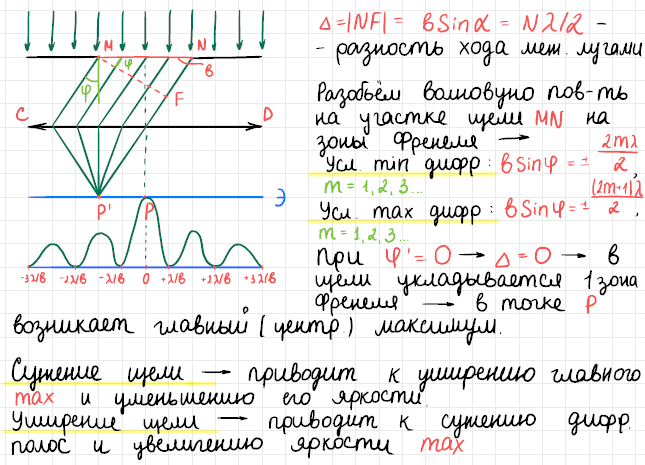 Δ=|NF|= bSinα = Nλ/2 -
- разность хода меж. лучами
M
N
φ
φ
b
F
C
D
Разобьём волновую пов-ть
на участке щели MN на
зоны Френеля →
Усл. min дифр: bSinφ=± 2mλ/2,
m=1,2,3...
Усл. max дифр: bSinφ=± (2m+1)λ/2,
m=1,2,3...
P'
P
Э
-3λ/b -2λ/b -λ/b 0 +λ/b +2λ/b +3λ/b
При φ'=0 → Δ=0 → в
щели укладывается 1 зона
Френеля → в точке P
возникает главный (центр) максимум.
Сужение щели → приводит к уширению главного
max и уменьшению его яркости.
Уширение щели → приводит к сужению дифр.
полос и увеличению яркости max